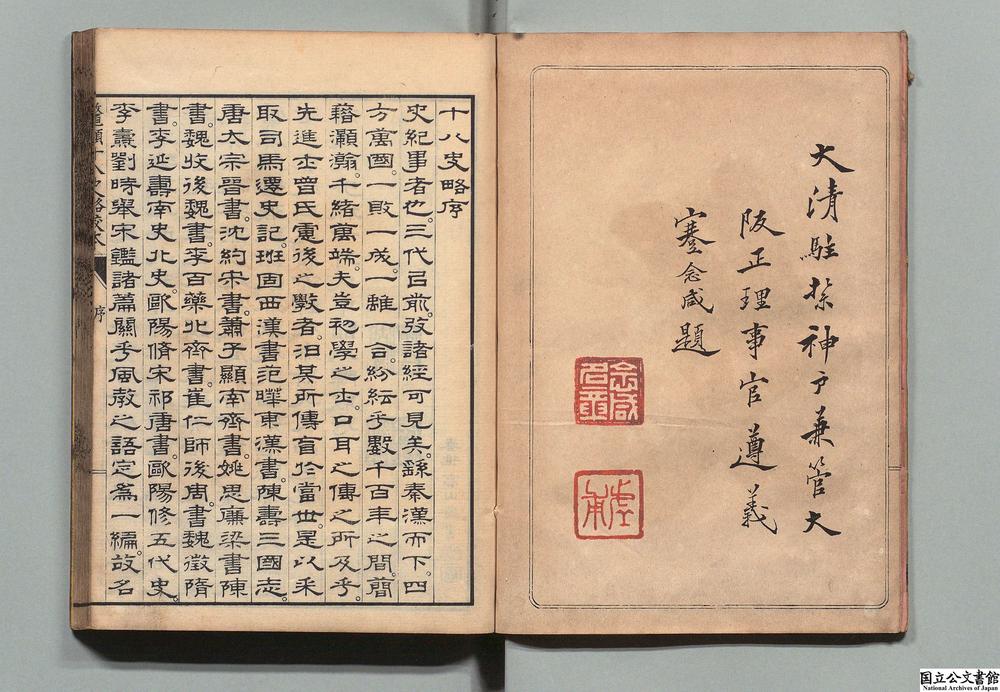 大清駐紮神戶兼管大
阪正理事官遵義
蹇念咸題
十八史略序
史紀事者也。三代㠯前。攷諸經可見矣。繇秦漢而下。四
方萬國。一敗一成。一離一合。紛紜乎數千百年之間。簡
籍灝瀚。千緒萬端。夫豈初學之士口耳之傳之所及乎。
先進士曾氏憲後之斅者。汩其所傳盲於當世。是以采
取司馬遷史記。班固西漢書。范曄東漢書。陳壽三國志。
唐太宗晉書。沈約宋書。蕭子顯南齊書。姚思廉梁書陳
書。魏收後魏書。李百藥北齊書。崔仁師後周書。魏徵隋
書。李延壽南史北史。歐陽脩宋祁唐書。歐陽修五代史。
李燾劉時舉宋鑑諸篇關乎風敎之語定爲一編。故名
序
国立公文書館
National Archives of Japan